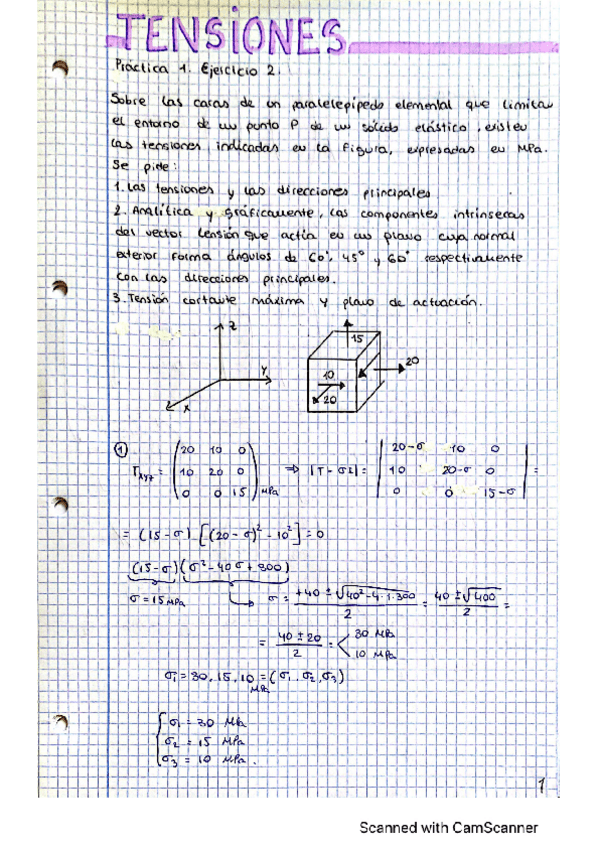 TENSIONES
Práctica 1. Ejercicio 2.
Sobre las caras de un paralelepípedo elemental que limitan
el entorno de un punto P de un sólido elástico, existen
las tensiones indicadas en la figura, expresadas en MPa.
Se pide:
1. Las tensiones y las direcciones principales.
2. Analítica y gráficamente, las componentes intrínsecas
del vector tensión que actúa en un plano cuya normal
exterior forma ángulos de 60°, 45° y 60° respectivamente
con las direcciones principales.
3. Tensión cortante máxima y plano de actuación.
Z
Y
X
15
20
10
20
① T_xyz = (20 10 0; 10 20 0; 0 0 15) MPa ⇒ |T - σI| = |20-σ 10 0; 10 20-σ 0; 0 0 15-σ| =
= (15-σ) [(20-σ)² - 10²] = 0
(15-σ)(σ² - 40σ + 300)
σ = 15 MPa → σ = (+40 ± √(40² - 4·1·300))/2 = (40 ± √400)/2 =
= (40 ± 20)/2 = < 30 MPa
10 MPa
σi = 30, 15, 10 = (σ1, σ2, σ3)
MPa
σ1 = 30 MPa
σ2 = 15 MPa
σ3 = 10 MPa.
1
Scanned with CamScanner